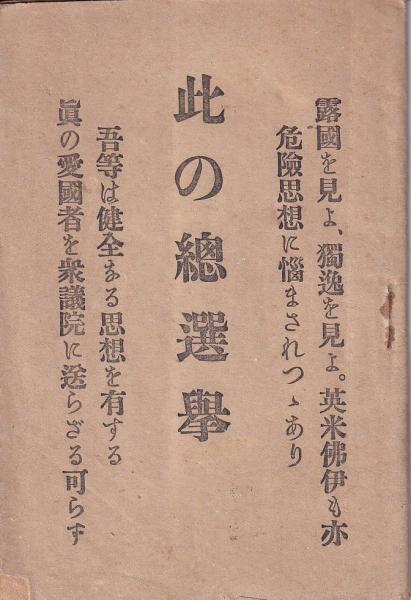 露國を見よ、獨逸を見よ。英米佛伊も亦
危險思想に惱まされつゝあり
此の總選擧
吾等は健全なる思想を有する
眞の愛國者を衆議院に送らざる可らず